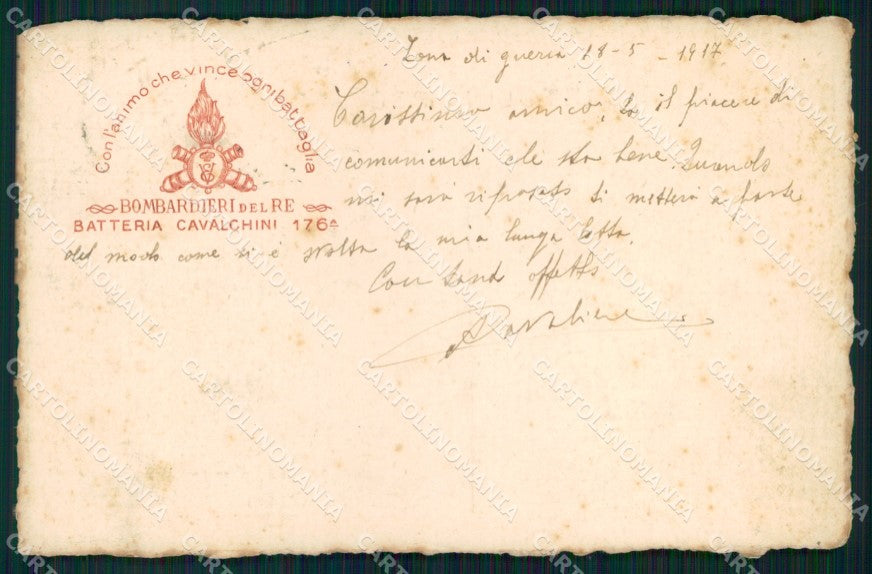 Con l'animo che vince ogni battaglia
BOMBARDIERI DEL RE
BATTERIA CAVALCHINI 176ª
Zona di guerra 18-5-1917
Carissimo amico, ho il piacere di
comunicarti che sto bene. Quando
mi sarò riposato ti metterò a parte
del modo come si è svolta la mia lunga lotta.
Con tanto affetto
CARTOLINOMANIA